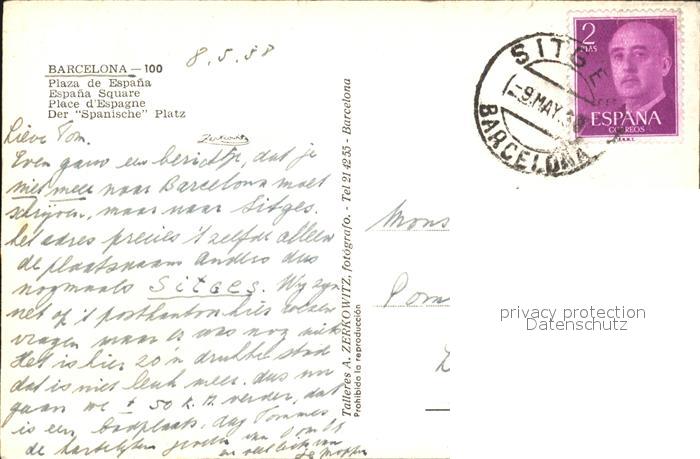 BARCELONA — 100
Plaza de España
España Square
Place d'Espagne
Der "Spanische" Platz
8.5.58
Zerkowitz
Lieve Tom.
Even gauw een berichtje, dat je
niet meer naar Barcelona moet
schrijven, maar naar Sitges.
het adres precies 't zelfde alleen
de plaatsnaam anders dus
nogmaals Sitges. Wij zijn
net op 't postkantoor hier wezen
vragen maar er was nog niets
Het is hier zo'n drukke stad
dat is niet leuk meer. dus nu
gaan we ± 50 K.M. verder, dat
is een badplaats. dag Tommes
de hartelijken groeten van
en veel liefs van
Talleres A. ZERKOWITZ, fotógrafo. - Tel 21 42 55 - Barcelona
Prohibida la reproducción
SITGES
9 MAY.
BARCELONA
2
PTAS
ESPAÑA
CORREOS
Mons
privacy protection
Datenschutz